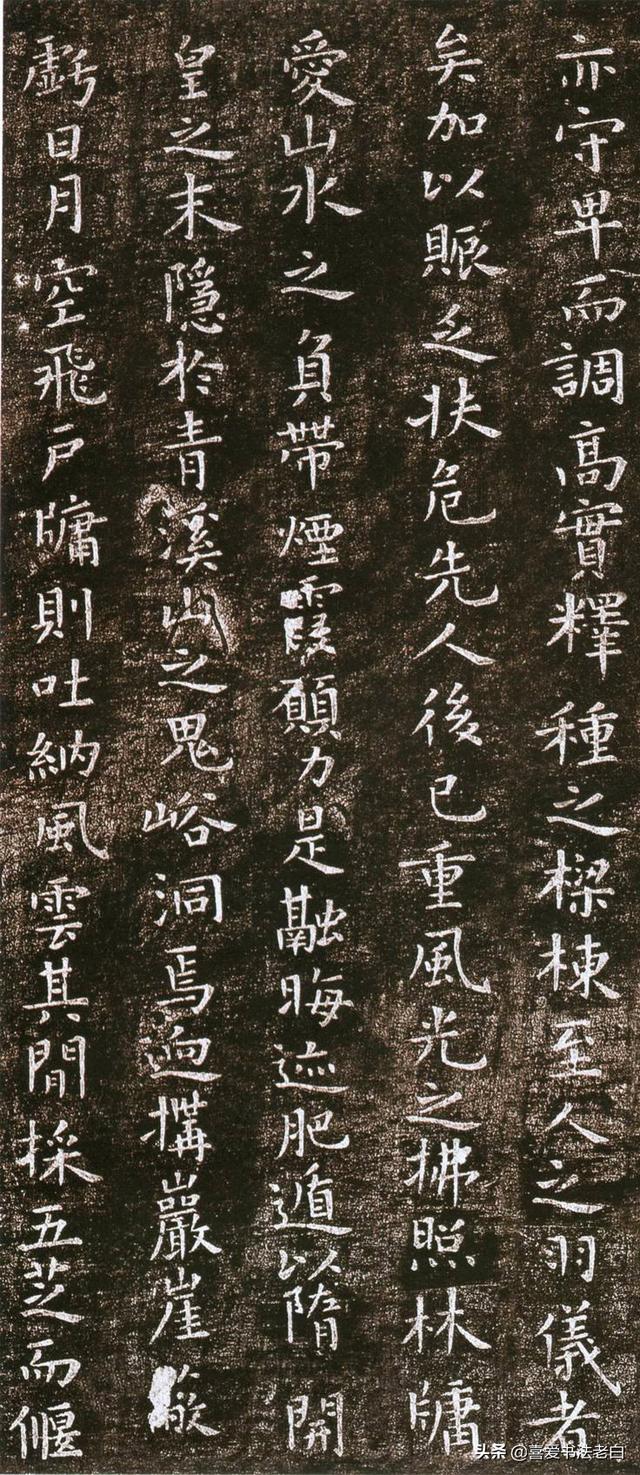 亦守卑而調高實釋種之樑棟至人之羽儀者
矣加以賑乏扶危先人後已重風光之拂照林牖
愛山水之負帶煙霞願力是融晦迹肥遁以隋開
皇之末隱於青溪山之鬼峪洞焉迥搆巖崖蔽
虧日月空飛戶牖則吐納風雲其間採五芝而偃
头条 @喜爱书法老白